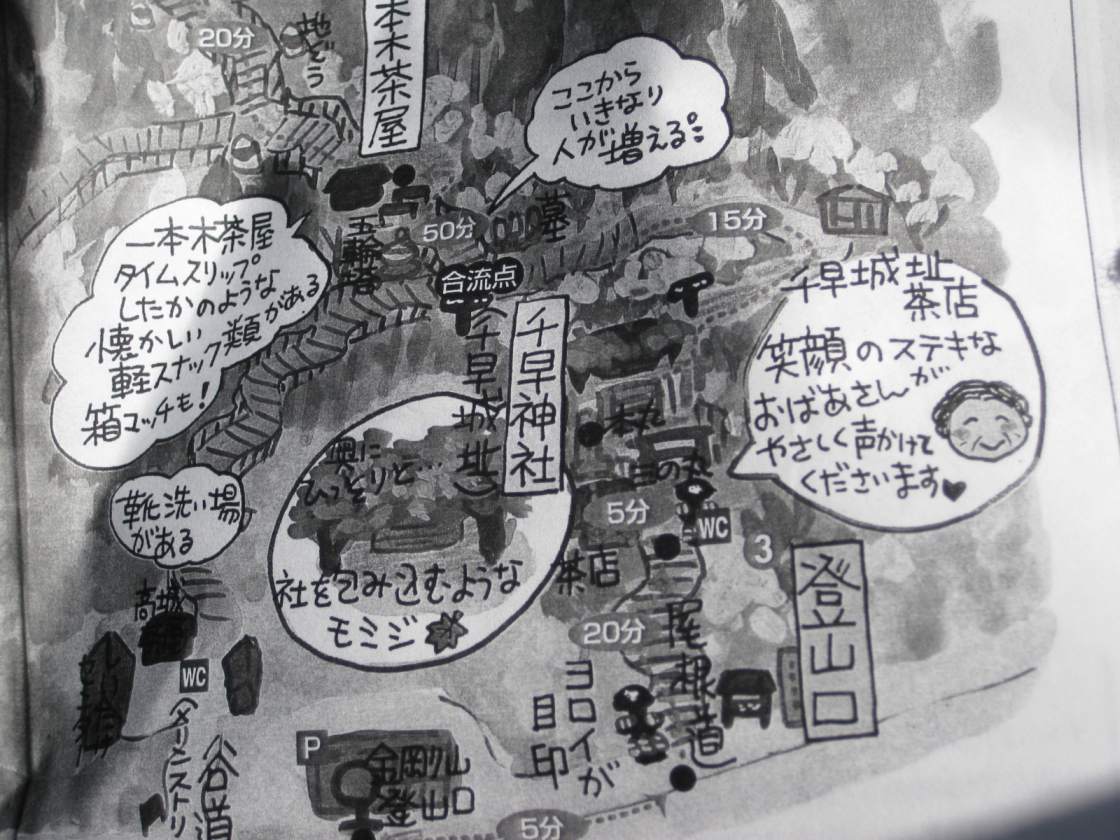 20分
地ぞう
本木茶屋
ここから
いきなり
人が増える
一本木茶屋
タイムスリップ
したかのような
懐かしい
軽スナック類がある
箱マッチも!
五輪塔
50分
墓
15分
合流点
千早神社
(千早城址)
千早城址
茶店
笑顔のステキな
おばあさんが
やさしく声かけて
くださいます♥
本丸
二の丸
5分
WC
3
茶店
登山口
20分
尾根道
ヨロイが
目印
奥に
ひっそりと…
社を包み込むような
モミジ
靴洗い場
がある
高城
WC
谷道
P
金剛山
登山口
5分